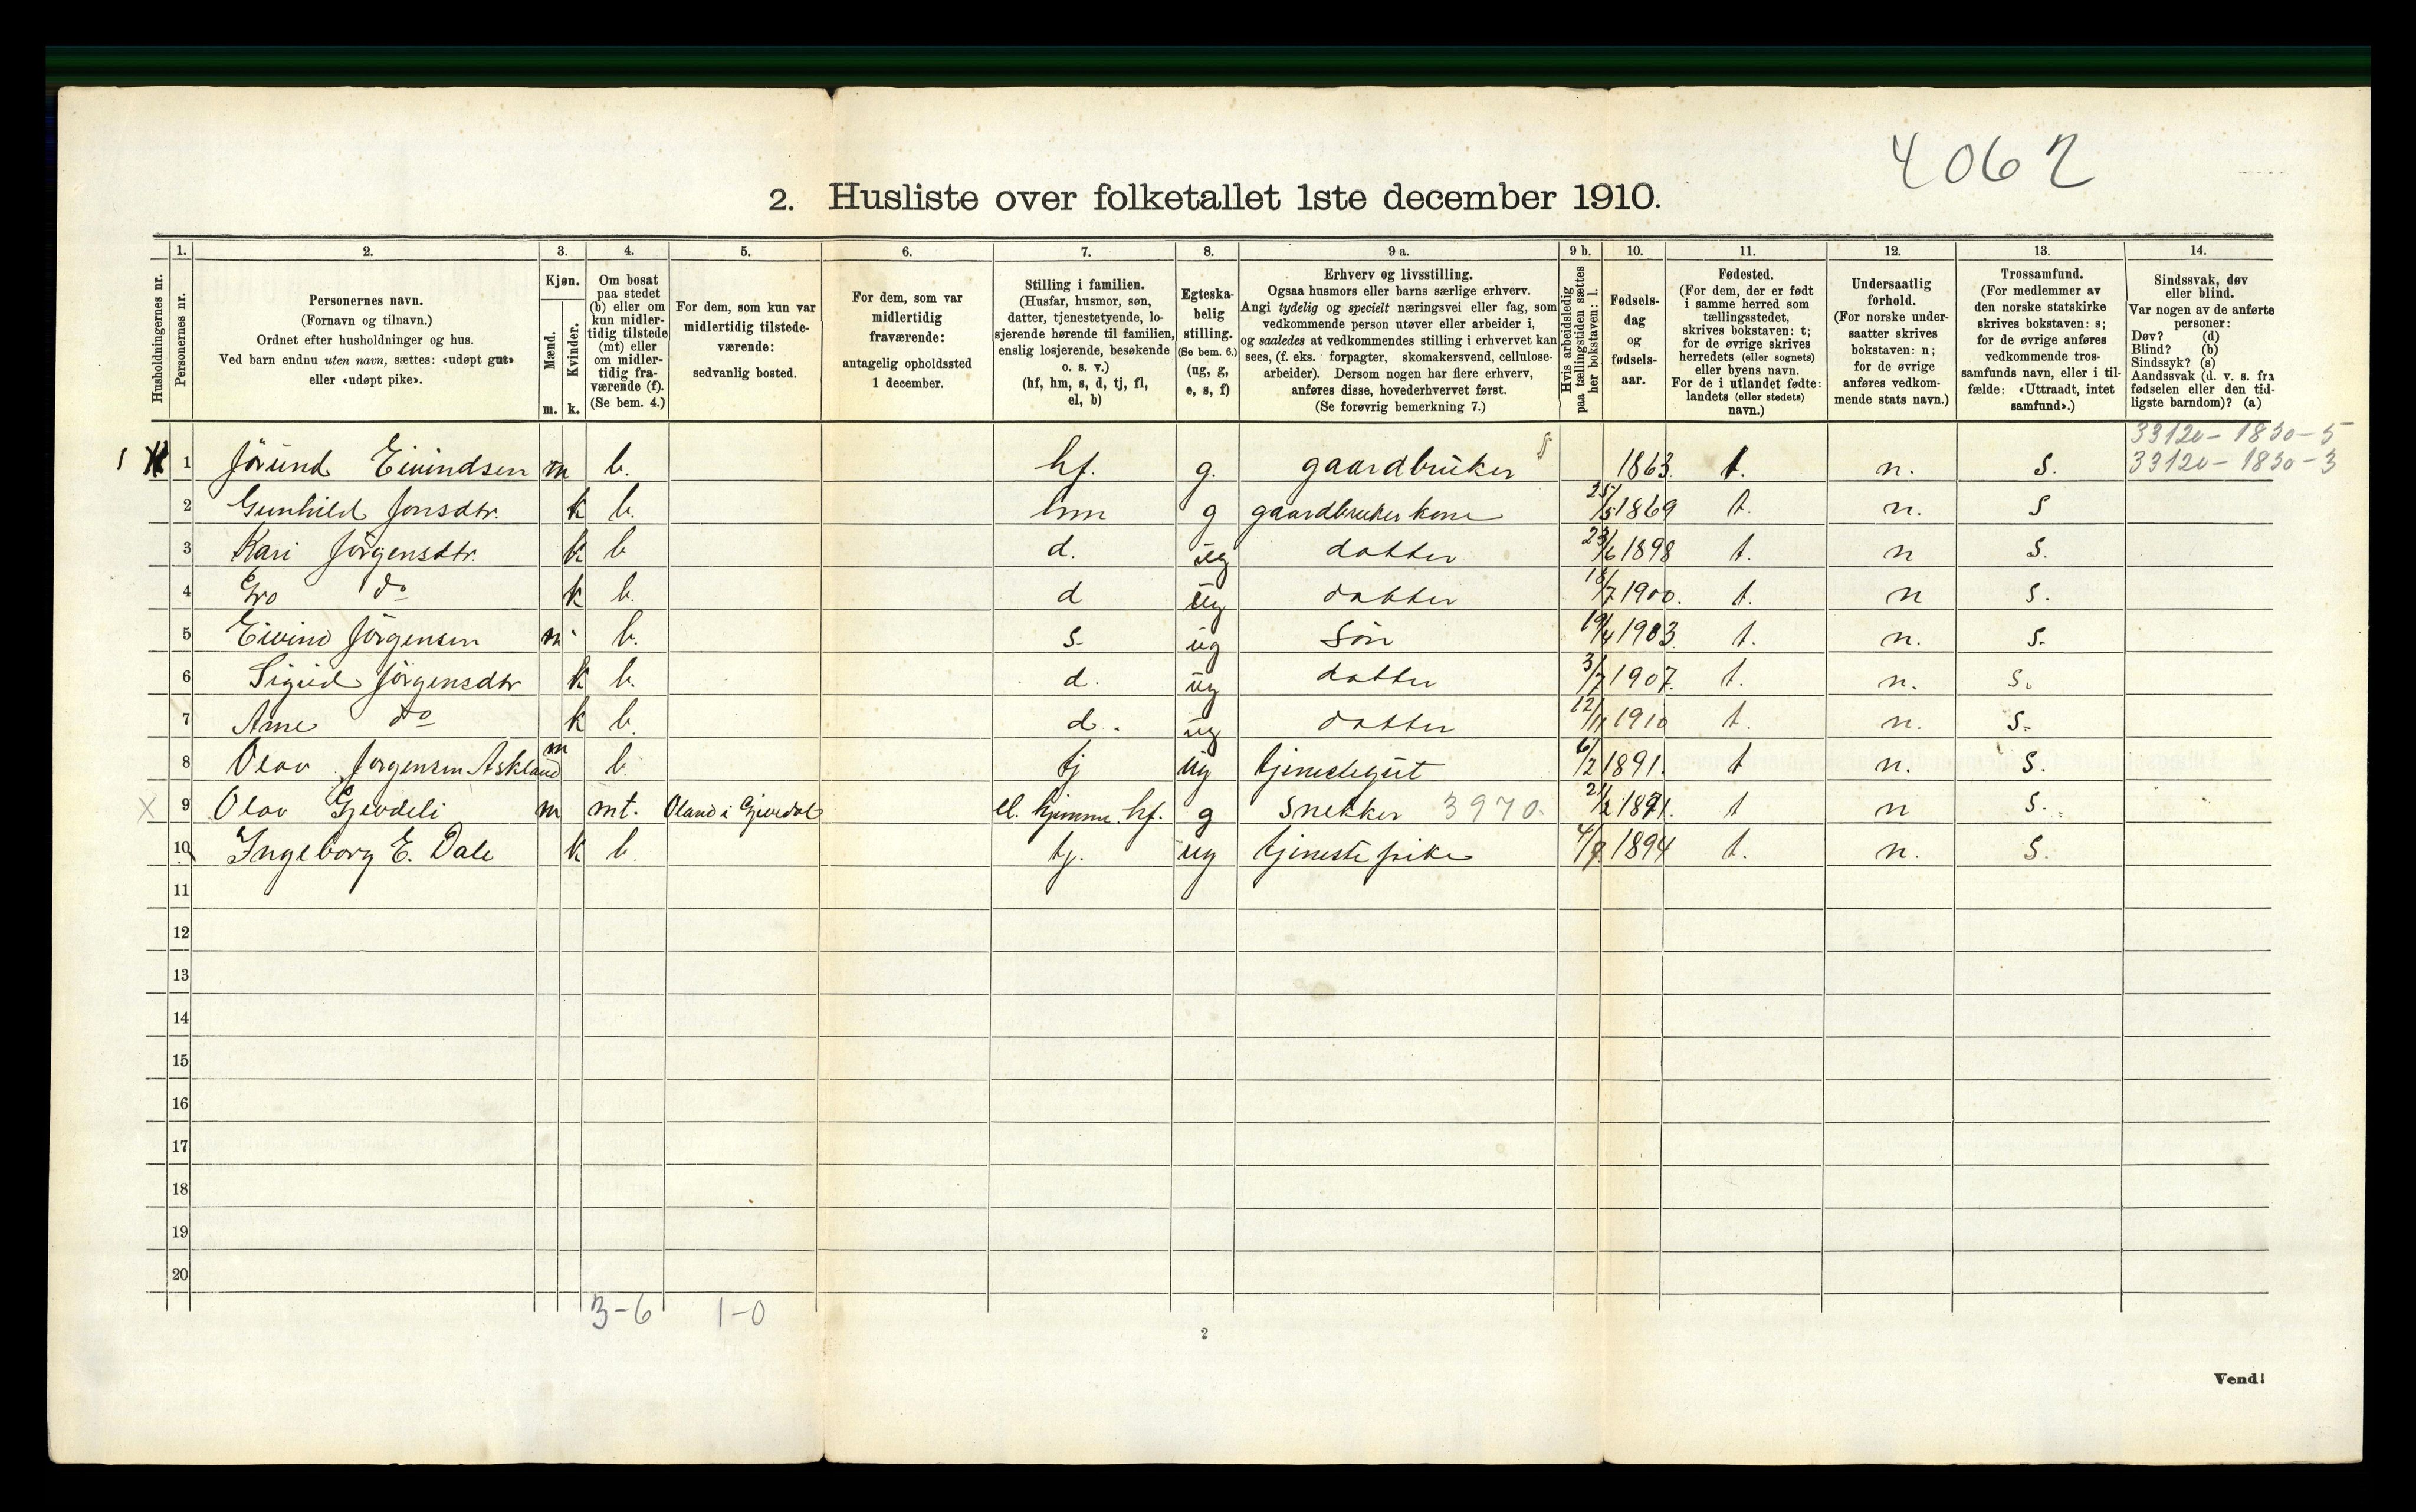 4062
2. Husliste over folketallet 1ste december 1910.
Husholdningernes nr.
1. Personernes nr.
2. Personernes navn. (Fornavn og tilnavn.) Ordnet efter husholdninger og hus. Ved barn endnu uten navn, sættes: «udøpt gut» eller «udøpt pike».
3. Kjøn. Mænd. m. Kvinder. k.
4. Om bosat paa stedet (b) eller om kun midler-tidig tilstede (mt) eller om midler-tidig fra-værende (f). (Se bem. 4.)
5. For dem, som kun var midlertidig tilstede-værende: sedvanlig bosted.
6. For dem, som var midlertidig fraværende: antagelig opholdssted 1 december.
7. Stilling i familien. (Husfar, husmor, søn, datter, tjenestetyende, lo-sjerende hørende til familien, enslig losjerende, besøkende o. s. v.) (hf, hm, s, d, tj, fl, el, b)
8. Egteska-belig stilling. (Se bem. 6.) (ug, g, e, s, f)
9 a. Erhverv og livsstilling. Ogsaa husmors eller barns særlige erhverv. Angi tydelig og specielt næringsvei eller fag, som vedkommende person utøver eller arbeider i, og saaledes at vedkommendes stilling i erhvervet kan sees, (f. eks. forpagter, skomakersvend, cellulose-arbeider). Dersom nogen har flere erhverv, anføres disse, hovederhvervet først. (Se forøvrig bemerkning 7.)
9 b. Hvis arbeidsledig paa tællingstiden sættes her bokstaven: l.
10. Fødsels-dag og fødsels-aar.
11. Fødested. (For dem, der er født i samme herred som tællingsstedet, skrives bokstaven: t; for de øvrige skrives herredets (eller sognets) eller byens navn. For de i utlandet fødte: landets (eller stedets) navn.)
12. Undersaatlig forhold. (For norske under-saatter skrives bokstaven: n; for de øvrige anføres vedkom-mende stats navn.)
13. Trossamfund. (For medlemmer av den norske statskirke skrives bokstaven: s; for de øvrige anføres vedkommende tros-samfunds navn, eller i til-fælde: «Uttraadt, intet samfund».)
14. Sindssvak, døv eller blind. Var nogen av de anførte personer: Døv? (d) Blind? (b) Sindssyk? (s) Aandssvak (d. v. s. fra fødselen eller den tid-ligste barndom)? (a)
33120 - 1830 - 5
1 1 Jörund Eivindsen m b. hf. g. gaardbruker 1863. t. n. s. 33120 - 1830 - 3
2 Gunhild Jonsdtr. k b. hm g gaardbruker kone 25/5 1869 t. n. s
3 Kari Jörgensdtr. k b d. ug datter 23/6 1898 t. n s.
4 Gro do k b. d ug datter 18/7 1900. t. n s.
5 Eivind Jörgensen m b. s. ug Sön 19/4 1903 t. n. s.
6 Sigrid Jörgensdtr k b. d. ug datter 3/7 1907. t. n. s.
7 Ane do k b. d. ug datter 12/11 1910 t. n. s.
8 Olav Jörgensen Askland m b. tj ug tjenestegut 6/2 1891. t n. s.
X 9 Olav Gjevdeli m mt. Oland i Gjevdal el. hjemme hf. g Snekker 3970. 21/2 1871. t n s.
10 Ingeborg E. Dale k b tj. ug tjeneste pike 4/9 1894 t. n. s.
11
12
13
14
15
16
17
18
19
20
3-6 1-0
2
Vend!